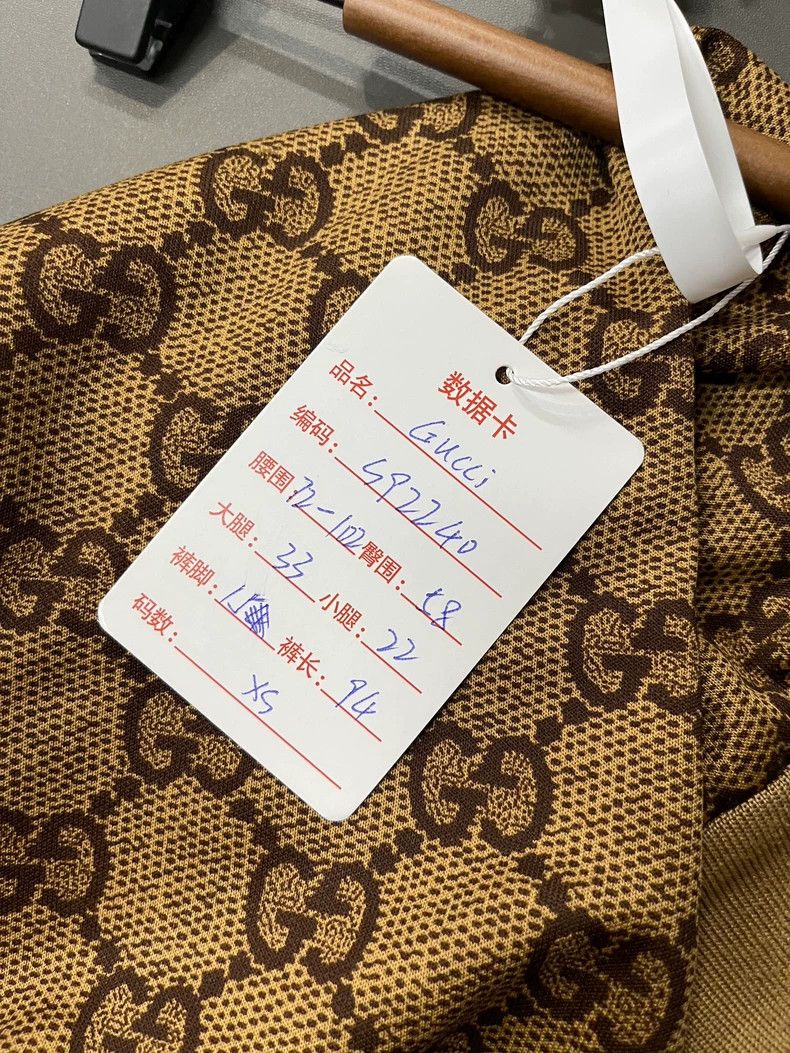 数据卡
品名: GUCCi
编码: 592240
腰围 72-102 臀围: 58
大腿: 33 小腿: 22
裤脚: 15 裤长: 94
码数: XS